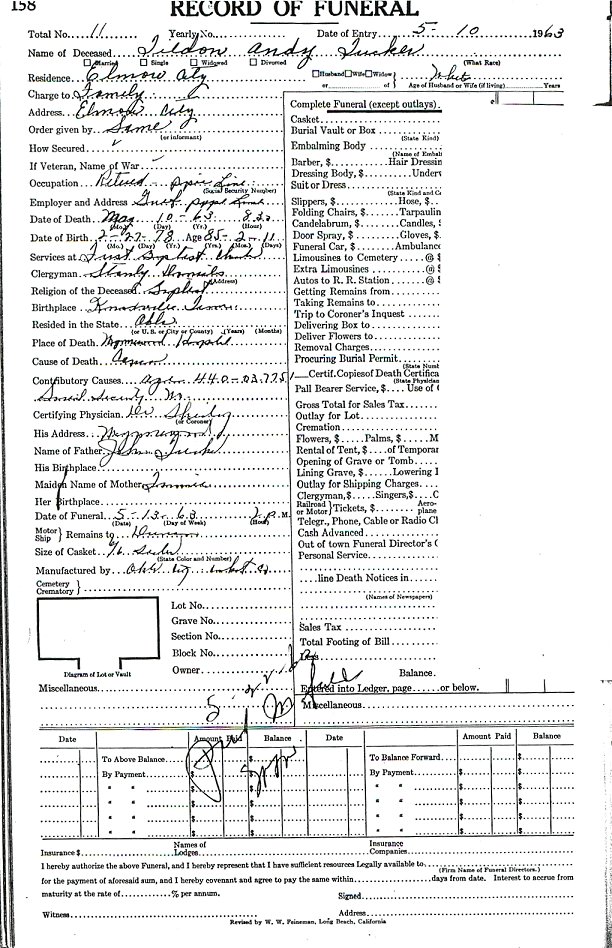 158
RECORD OF FUNERAL
Total No. 11 Yearly No. Date of Entry 5- 10 1963
Name of Deceased Tildon Andy Tucker
☐ Married ☐ Single ☐ Widowed ☐ Divorced (What Race)
Residence Elmore City ☐Husband☐Wife☐Widow White
or of Age of Husband or Wife (if living) Years
Charge to Family
Address Elmore City
Order given by Same
(or informant)
How Secured
If Veteran, Name of War
Occupation Retired - pipe Line
(Social Security Number)
Employer and Address Gulf pipe Line
Date of Death May 10-63 8:30
(Mo.) (Day) (Yr.) (Hour)
Date of Birth 2-27-78 Age 85-2-11
(Mo.) (Day) (Yr.) (Yrs.) (Mo.) (Days)
Services at First Baptist Church
Clergyman Stanly
(Address)
Religion of the Deceased Baptist
Birthplace Knoxville Tenn
Resided in the State Okla
(or U. S. or City or County) (Years) (Months)
Place of Death Hospital
Cause of Death
Contributory Causes 440-03-7751
Social Security No.
Certifying Physician Dr
(or Coroner)
His Address
Name of Father John Tucker
His Birthplace
Maiden Name of Mother
Her Birthplace
Date of Funeral 5-13-63 2 P. M.
(Date) (Day of Week) (Hour)
Motor Ship } Remains to
Size of Casket 6/6
(State Color and Number)
Manufactured by Okla City Casket Co
Cemetery
Crematory }
Lot No.
Grave No.
Section No.
Block No.
Owner
Diagram of Lot or Vault
Miscellaneous
Complete Funeral (except outlays)
Casket
Burial Vault or Box
(State Kind)
Embalming Body
(Name of Embal
Barber, $ Hair Dressin
Dressing Body, $ Underv
Suit or Dress
(State Kind and C
Slippers, $ Hose, $
Folding Chairs, $ Tarpaulin
Candelabrum, $ Candles, $
Door Spray, $ Gloves, $
Funeral Car, $ Ambulanc
Limousines to Cemetery @ $
Extra Limousines @ $
Autos to R. R. Station @ $
Getting Remains from
Taking Remains to
Trip to Coroner's Inquest
Delivering Box to
Deliver Flowers to
Removal Charges
Procuring Burial Permit
(State Numb
Certif. Copies of Death Certifica
(State Physician
Pall Bearer Service, $ Use of
Gross Total for Sales Tax
Outlay for Lot
Cremation
Flowers, $ Palms, $ M
Rental of Tent, $ of Temporar
Opening of Grave or Tomb
Lining Grave, $ Lowering
Outlay for Shipping Charges
Clergyman, $ Singers, $ C
Railroad or Motor } Tickets, $ Aero-plane
Telegr., Phone, Cable or Radio Cl
Cash Advanced
Out of town Funeral Director's
Personal Service
line Death Notices in
(Names of Newspapers)
Sales Tax
Total Footing of Bill
Balance
Entered into Ledger, page or below.
Miscellaneous
Date Amount Paid Balance Date Amount Paid Balance
To Above Balance To Balance Forward
By Payment $ $ By Payment $ $
" " $ $ " " $ $
" " $ $ " " $ $
" " $ $ " " $ $
" " $ $ " " $ $
Paid
Insurance $ Names of Lodges Insurance Companies
I hereby authorize the above Funeral, and I hereby represent that I have sufficient resources Legally available to
(Firm Name of Funeral Directors.)
for the payment of aforesaid sum, and I hereby covenant and agree to pay the same within days from date. Interest to accrue from
maturity at the rate of % per annum. Signed
Witness Address
Revised by W. W. Feineman, Long Beach, California